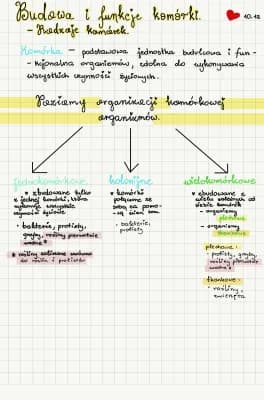 Budowa i funkcje komórki.
- Rodzaje komórek.
10.12
Komórka - podstawowa jednostka budulcowa i fun-
-kcjonalna organizmów, zdolna do wykonywania
wszystkich czynności życiowych.
Poziomy organizacji komórkowej
organizmów.
jednokomórkowe
* zbudowane tylko
z jednej komórki, która
wykonuje wszystkie
czynności życiowe
• bakterie, protisty,
grzyby, rośliny pierwotnie
wodne*
* rośliny zaliczane zarówno
do roślin i protistów
kolonijne
* komórki
połączone ze
sobą za pomo-
-cą
• bakterie,
protisty
wielokomórkowe
* zbudowane z
wielu zależnych od
siebie komórek
- organizmy
plechowe
- organizmy
tkankowe
plechowe:
• protisty, grzyby,
rośliny pierwotnie
wodne*
tkankowe:
• rośliny,
zwierzęta